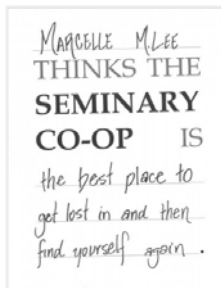 MARCELLE M. LEE
THINKS THE
SEMINARY
CO-OP IS
the best place to
get lost in and then
find yourself again.